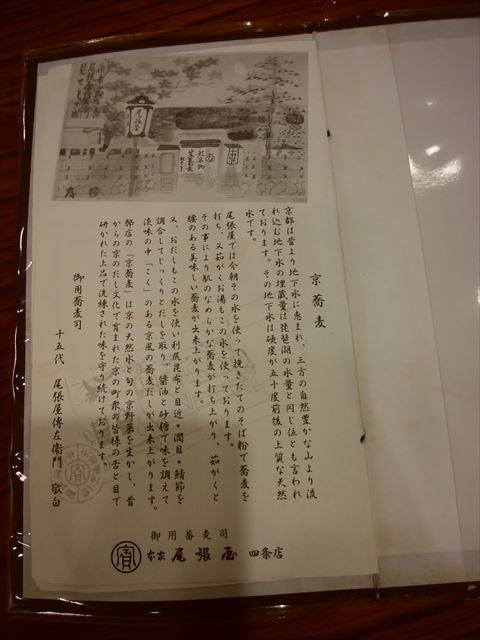 京蕎麦
京都は昔より地下水に恵まれ、三方の自然豊かな山より流
れ込む地下水の埋蔵量は琵琶湖の水量と同じ位とも言われ
ております。その地下水は硬度が五十度前後の上質な天然
水です。
尾張屋では今朝その水を使って挽きたてのそば粉で蕎麦を
打ち、又茹がくお湯もこの水を使っております。
その事により肌のなめらかな蕎麦が打ち上がり、茹がくと
腰のある美味しい蕎麦が出来上がります。
又、おだしもこの水を使い利尻昆布と目近・潤目・鯖節を
調合してじっくりとだしを取り、醤油と砂糖で味を調えて
淡味の中「こく」のある京風の蕎麦だしが出来上がります。
弊店の「京蕎麦」は京の天然水と旬の京野菜を生かし、昔
からの京のだし文化で育まれた京の町衆の皆様の舌と目で
研かれた上品で洗練された味を守り続けております。
御用蕎麦司
十五代 尾張屋傳左衛門 敬白
御用蕎麦司
寳 本家 尾張屋 四条店